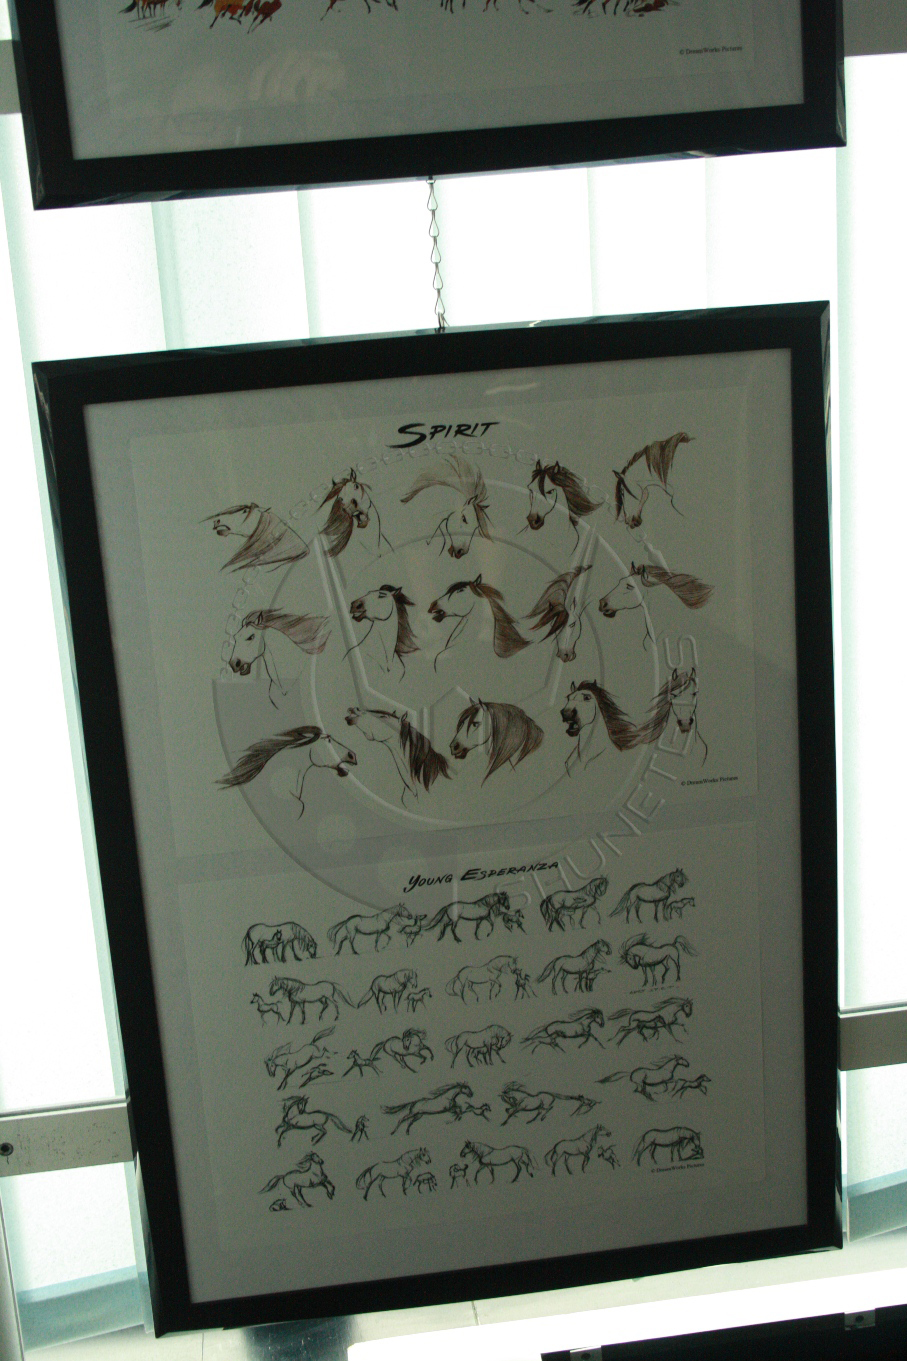 © DreamWorks Pictures
SPIRIT
© DreamWorks Pictures
YOUNG ESPERANZA
© DreamWorks Pictures